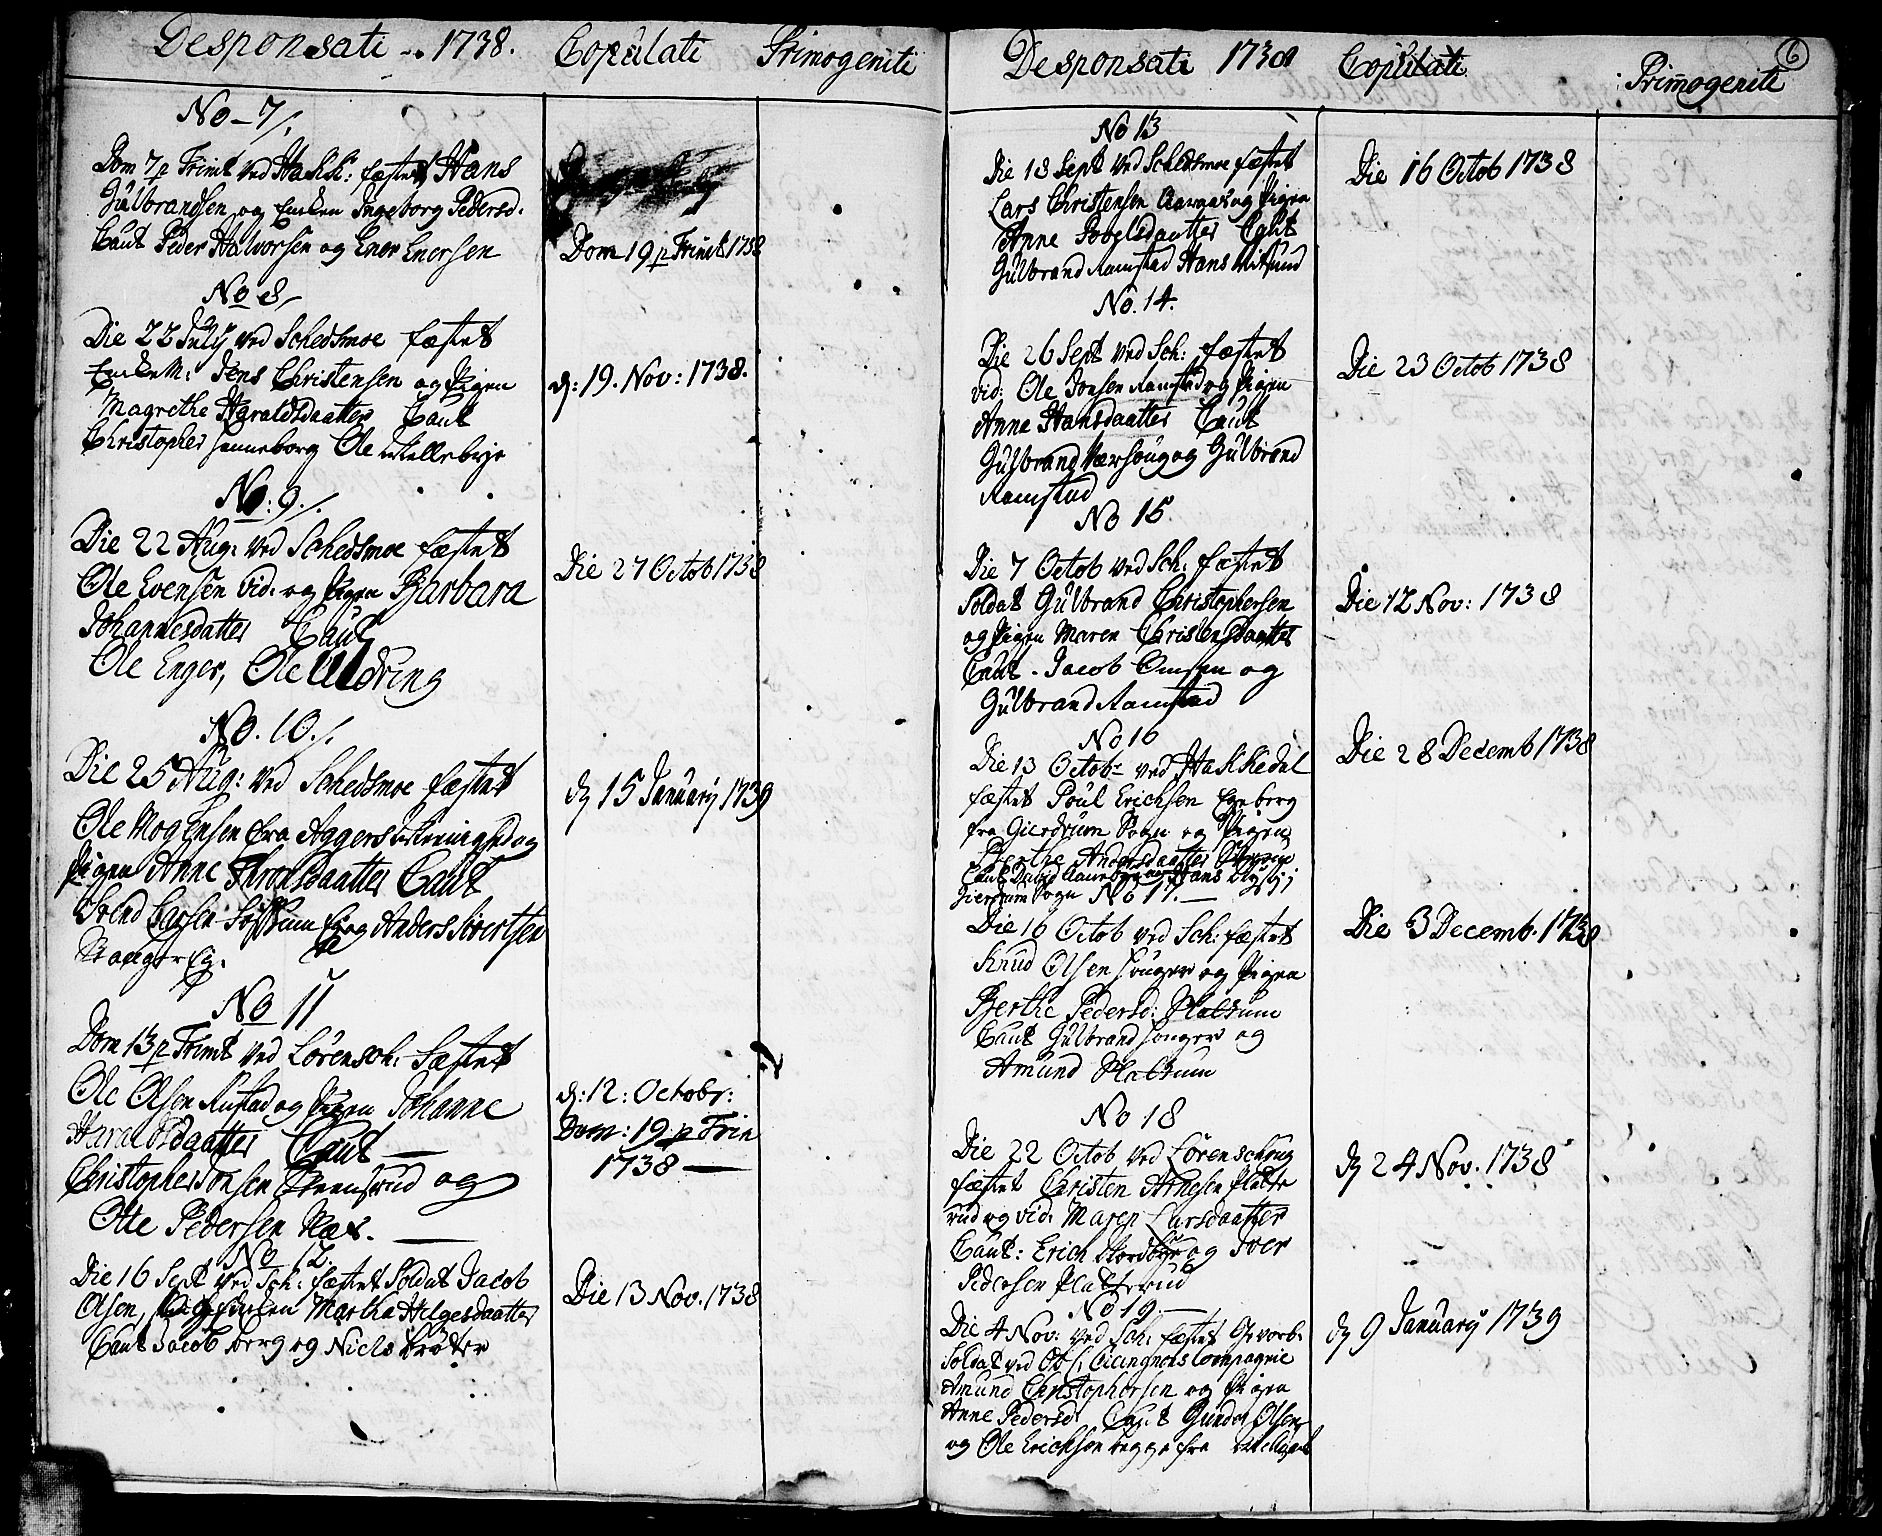 Desponsati -. 1738. Copulati Primogeniti
No - 7/.
Dom 7 p Trinit ved Hakk: fæstet Hans
Gulbrandsen og Enken Ingeborg Pedersd.
Caut Peder Halvorsen og Ener Enersen
Dom 19 p Trinit 1738
No 8/
Die 22 July ved Schedsmoe fæstet
Enkem: Jens Christensen og Pigen
Magrethe Haraldsdaatter Caut
Christopher Ole
d: 19. Nov: 1738.
No: 9/.
Die 22 Aug: ved Schedsmoe fæstet
Ole Evensen vid. og Pigen Barbara
Johannesdatter Caut
Ole Enger, Ole
Die 27 Octob 1738
No. 10./.
Die 25 Aug: ved Schedsmoe fæstet
Ole Mogensen fra Aggers og
Pigen Anne Caut
Svend Larsen og Anders Sivertsen
d 15 January 1739
No 11
Dom 13 p Trinit ved Lørensch: fæstet
Ole Olsen Rustad og Pigen Johanne
Haraldsdaatter Caut —
Christopher Jonsen og
Otte Pedersen
d: 12: Octobr:
Dom: 19 p Trin
1738 —
No 12
Die 16 Sept ved Sch: fæstet Soldat Jacob
Olsen, Martha Helgesdaatter
Caut Jacob berg og Niels
Die 13 Nov. 1738
Desponsati 1738 Copulati Primogeniti
6
No 13
Die 18 Sept ved Schedsmoe fæstet
Lars Christensen Aaraas og Pigen
Anne Caut
Gulbrand Ramstad Hans
Die 16 Octob 1738
No. 14.
Die 26 Sept ved Sch: fæstet
vid: Ole Jonsen Ramstad og Pigen
Anne Hansdaatter Caut
Gulbrand og Gulbrand
Ramstad
Die 23 Octob 1738
No 15
Die 7 Octob ved Sch: fæstet
Soldat Gulbrand Christophersen
og Pigen Maren Christensdaatter
Caut. Jacob og
Gulbrand Ramstad
Die 12 Nov: 1738
No 16
Die 13 Octobr ved Hakkedal
fæstet Poul Erichsen
fra Gierdrum Sogn og Pigen
Berthe Andersdaatter
Caut David Hans
Gierdrum Sogn
Die 28 Decemb 1738
No 17. —
Die 16 Octob ved Sch: fæstet
Knud Olsen og Pigen
Berthe Pedersd: Platrum
Caut Gulbrand og
Amund Platrum
Die 3 Decemb. 1738
No 18
Die 22 Octob ved Lørenschoug
fæstet Christen Arnesen Platte
rud og vid. Maren Larsdaatter
Caut: Erich Nordbye og Iver
Pedersen Platterud
d 24 Nov. 1738
No 19. —
Die 4 Nov: ved Sch: fæstet Gevorb.
Soldat ved Compagnie
Amund Christophersen og Pigen
Anne Pedersd: Caut Gunder Olsen
og Ole Erichsen begge fra
d 9 January 1739